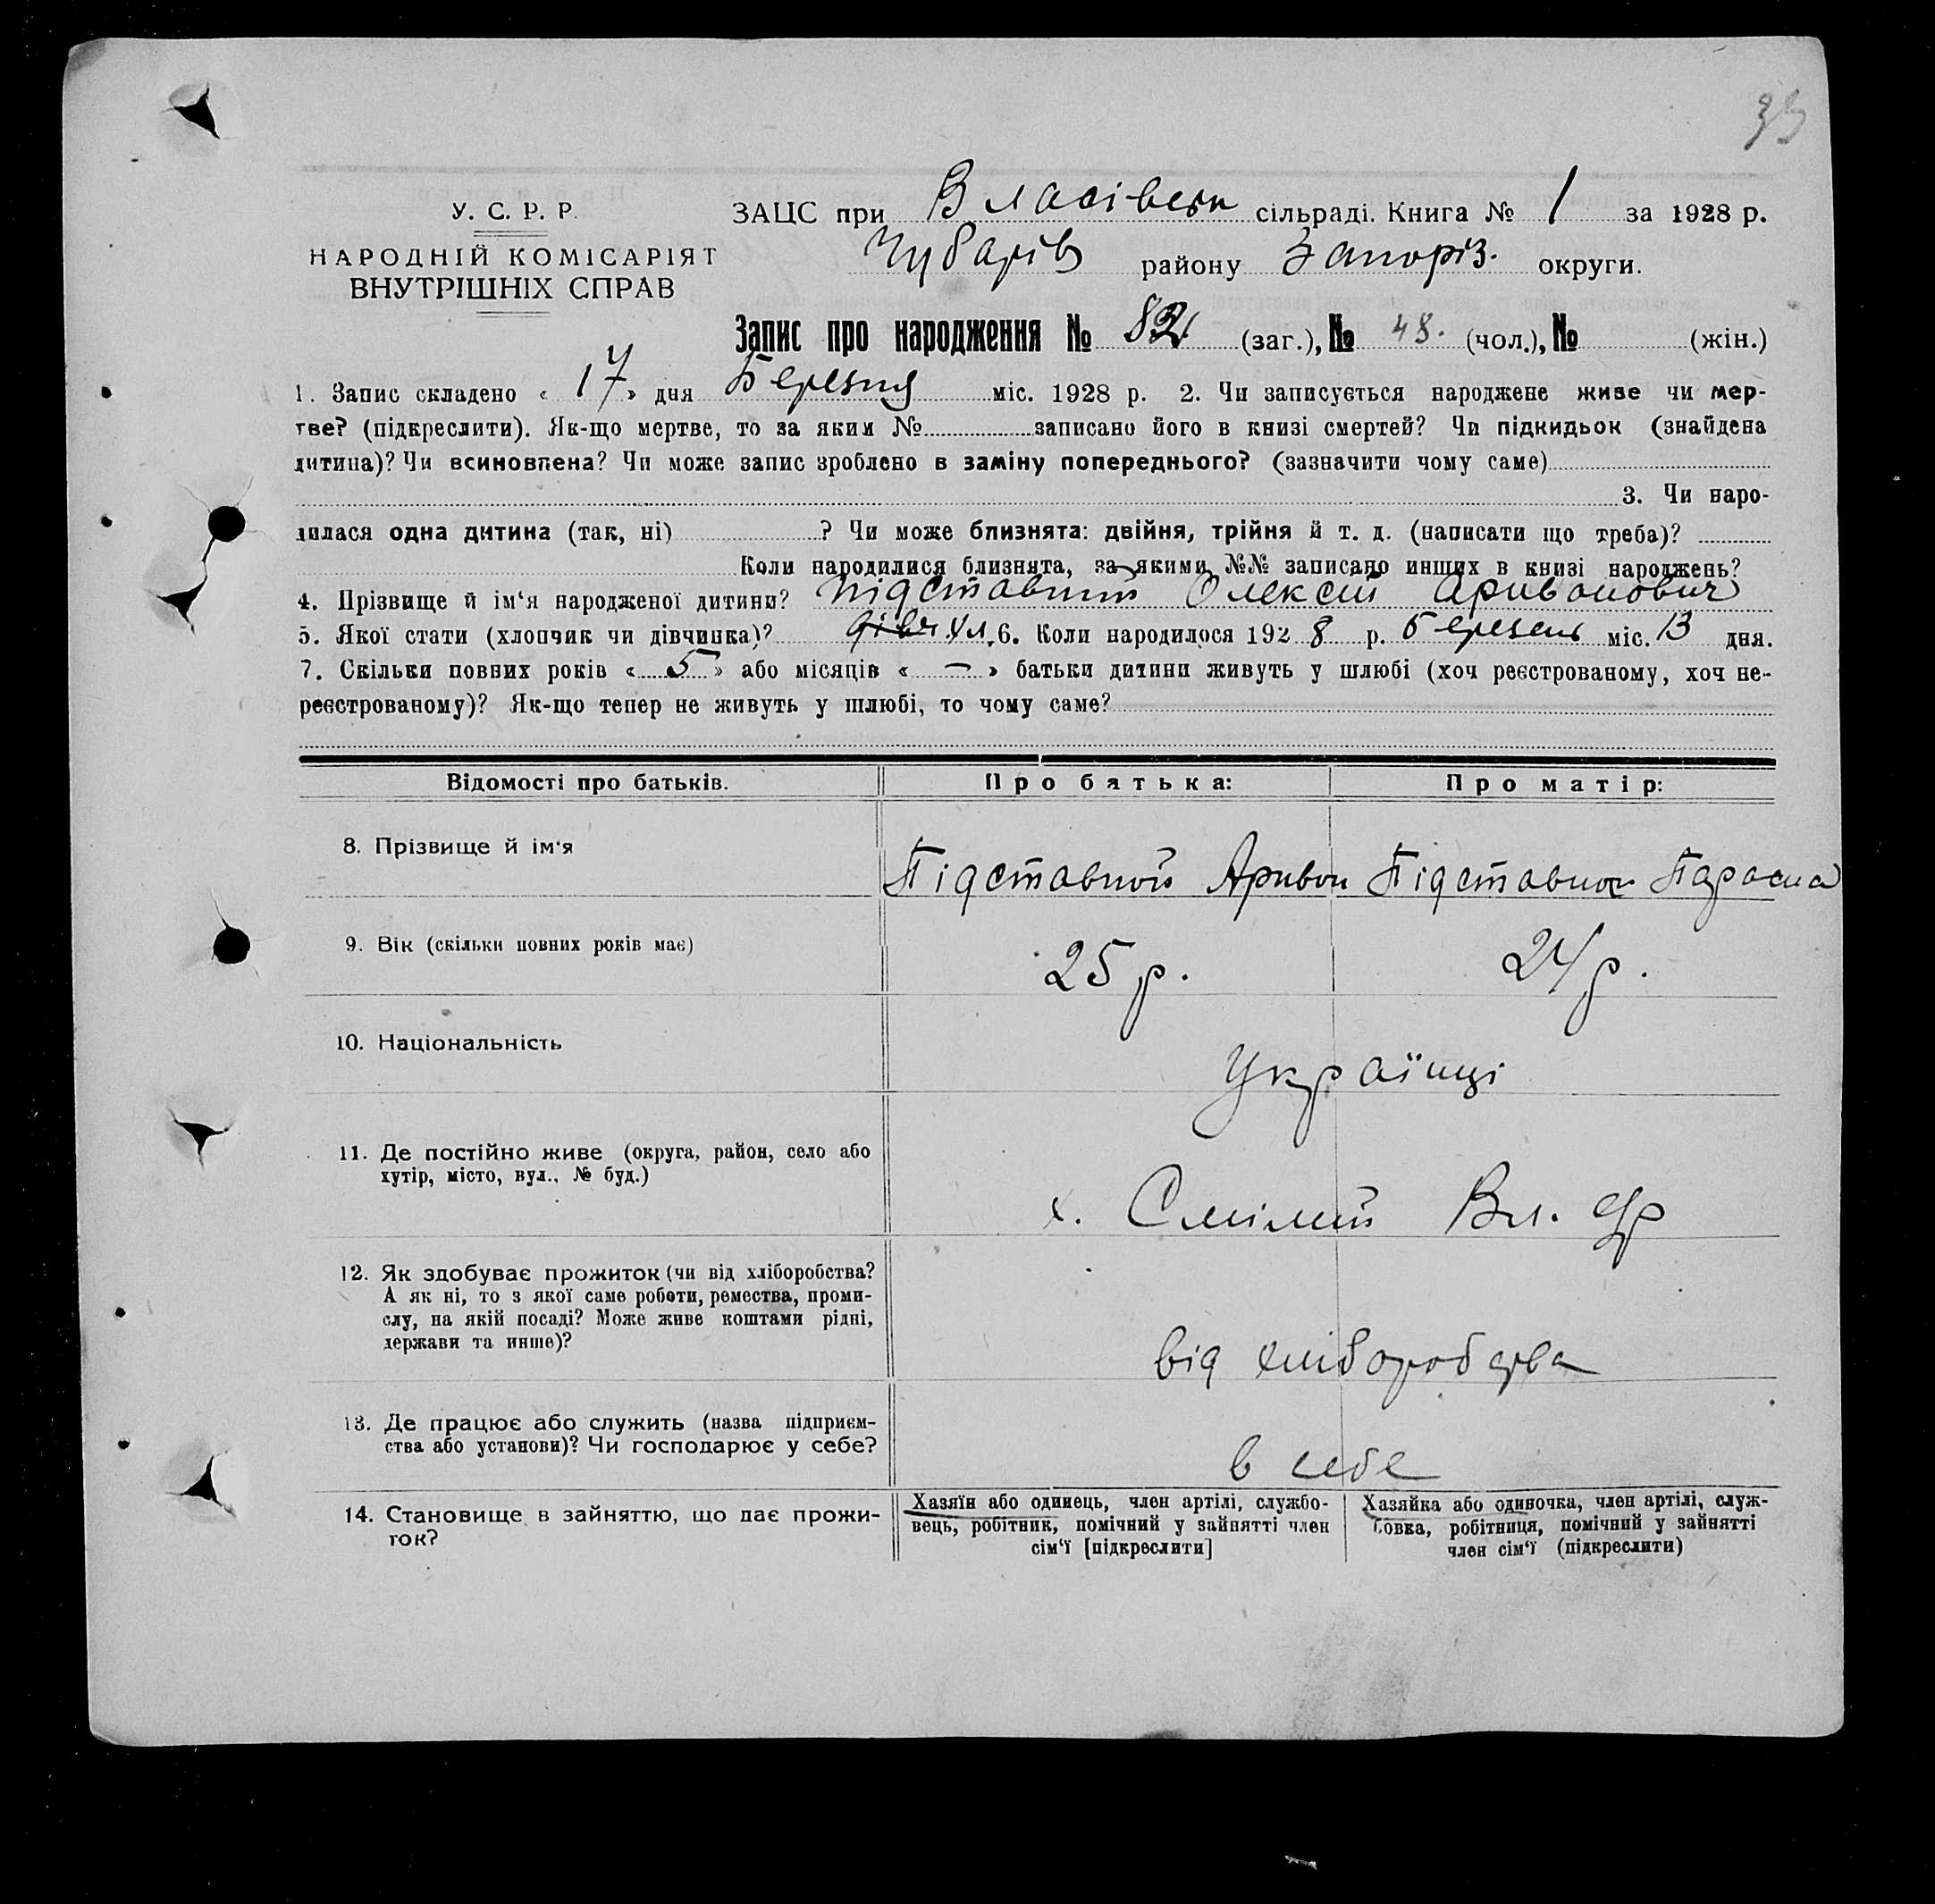 У. С. Р. Р.
НАРОДНІЙ КОМІСАРІЯТ
ВНУТРІШНІХ СПРАВ
ЗАЦС при Власівськ сільраді. Книга № 1 за 1928 р.
Чубарів району Запоріз. округи.
Запис про народження № 82 (заг.), № 48. (чол.), № (жін.)
1. Запис складено « 17 » дня Березня міс. 1928 р. 2. Чи записується народжене живе чи мер-
тве? (підкреслити). Як-що мертве, то за яким № записано його в книзі смертей? Чи підкидьок (знайдена
дитина)? Чи всиновлена? Чи може запис зроблено в заміну попереднього? (зазначити чому саме)
3. Чи наро-
дилася одна дитина (так, ні) ? Чи може близнята: двійня, трійня й т. д. (написати що треба)?
Коли народилися близнята, за якими №№ записано инших в книзі народжень?
4. Прізвище й ім‘я народженої дитини? Підставний Олексій Аривонович
5. Якої стати (хлопчик чи дівчинка)? чл. 6. Коли народилося 1928 р. березень міс. 13 дня.
7. Скільки повних років « 5 » або місяців « — » батьки дитини живуть у шлюбі (хоч реєстрованому, хоч не-
реєстрованому)? Як-що тепер не живуть у шлюбі, то чому саме?
Відомості про батьків. Про батька: Про матір:
8. Прізвище й ім‘я Підставной Аривон Підставная Параска
9. Вік (скільки повних років має) 25 р. 24 р.
10. Національність Українці
11. Де постійно живе (округа, район, село або
хутір, місто, вул., № буд.)
х. Смілий Вл. с/р
12. Як здобуває прожиток (чи від хліборобства?
А як ні, то з якої саме роботи, ремества, проми-
слу, на якій посаді? Може живе коштами рідні,
держави та инше)?
від хліборобства
13. Де працює або служить (назва підприєм-
ства або установи)? Чи господарює у себе?
в себе
14. Становище в зайняттю, що дає прожи-
ток?
Хазяїн або одинець, член артілі, службо-
вець, робітник, помічний у зайнятті член
сім‘ї [підкреслити]
Хазяйка або одиночка, член артілі, служ-
бовка, робітниця, помічний у зайнятті
член сім‘ї (підкреслити)